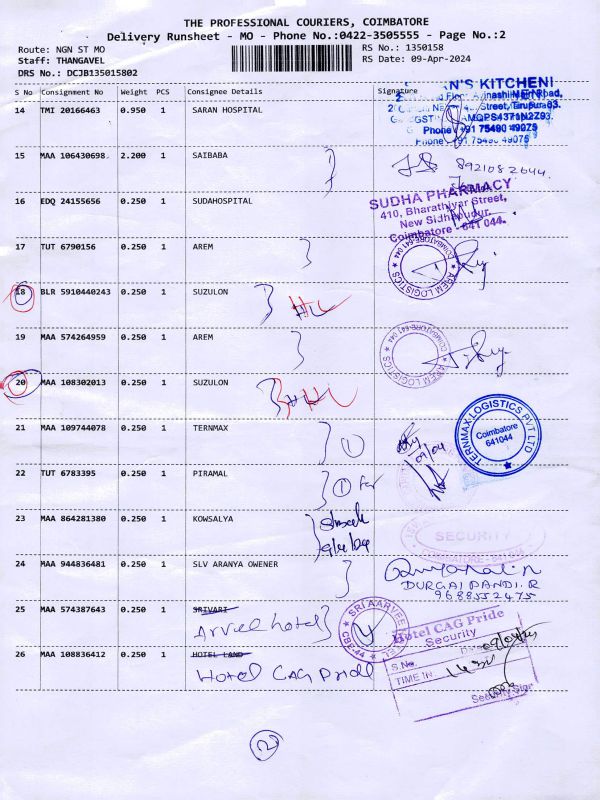 THE PROFESSIONAL COURIERS, COIMBATORE
Delivery Runsheet - MO - Phone No.:0422-3505555 - Page No.:2
Route: NGN ST MO
RS No.: 1350158
Staff: THANGAVEL
RS Date: 09-Apr-2024
DRS No.: DCJB135015802
S No Consignment No Weight PCS Consignee Details Signature
14 TMI 20166463 0.950 1 SARAN HOSPITAL
'S KITCHEN
Road,
Street, Tirupur
Phone +91 75490 49075
15 MAA 106430698 2.200 1 SAIBABA
8921082644
16 EDQ 24155656 0.250 1 SUDAHOSPITAL
SUDHA PHARMACY
410, Bharathiyar Street,
New Sidhapudur,
Coimbatore - 641 044.
17 TUT 6790156 0.250 1 AREM
AREM LOGISTICS COIMBATORE-641 044
18 BLR 5910440243 0.250 1 SUZULON
19 MAA 574264959 0.250 1 AREM
AREM LOGISTICS COIMBATORE-641 044
20 MAA 108302013 0.250 1 SUZULON
21 MAA 109744078 0.250 1 TERNMAX
1
09/04
TERNMAX LOGISTICS PVT LTD
Coimbatore
641044
22 TUT 6783395 0.250 1 PIRAMAL
1
23 MAA 864281380 0.250 1 KOWSALYA
SECURITY
24 MAA 944836481 0.250 1 SLV ARANYA OWENER
DURGAI PANDI. R
9688552475
25 MAA 574387643 0.250 1 SRIVARI
Arvee hotel
SRI AARVEE HOTEL CBE-44
26 MAA 108836412 0.250 1 HOTEL LAND
HOTEL CAG PRIDE
Hotel CAG Pride
Security
S.No.
TIME IN
Security Sign
2